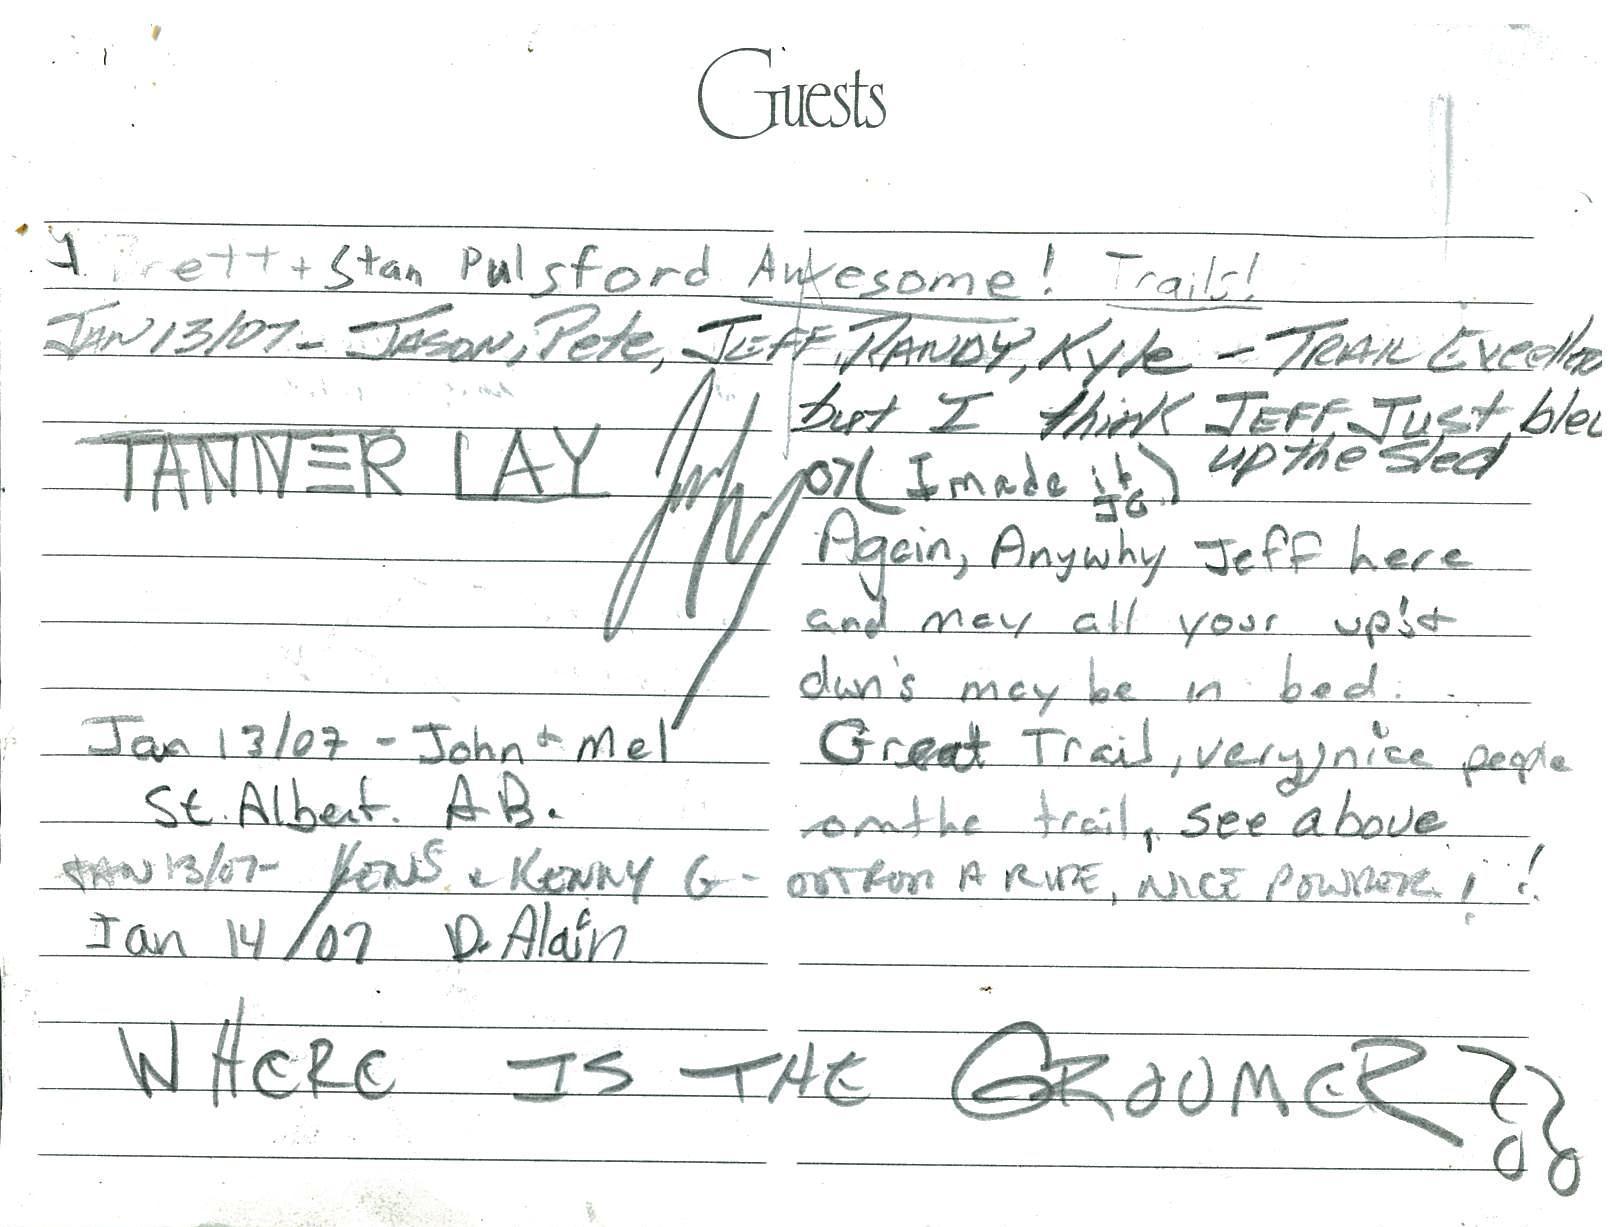 Guests
Brett + Stan Pulsford Awesome! Trails!
JAN 13/07 - JASON, Pete, JEFF, RANDY, Kyle - TRAIL
but I think JEFF Just
up the Sled
TANNER LAY
07 (I made it JG)
Again, Anywhy Jeff here
and may all your up's +
dwn's may be in bed.
Jan 13/07 - John + Mel Great Trail, very nice people
St. Albert. AB. on the trail, see above
JAN 13/07 - KENS & KENNY G - OUT FOR A RIDE, NICE POWDER!!
Jan 14/07 D. Alain
WHERE IS THE GROOMER ??